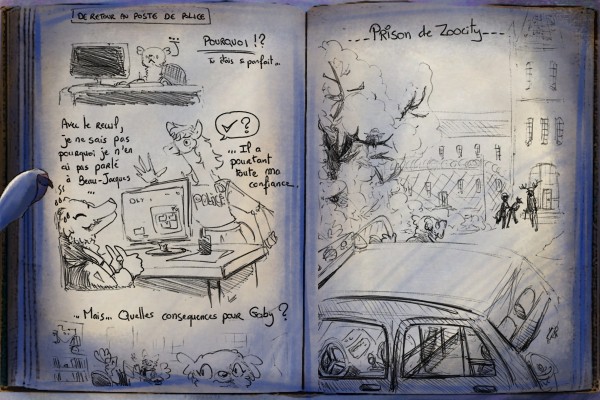 DE RETOUR AU POSTE DE POLICE
POURQUOI !?
Tu étais si parfait...
Avec le recul,
je ne sais pas
pourquoi je n'en
ai pas parlé
à Beau-Jacques
...
?
... Il a
pourtant
toute ma
confiance.
POLICE
... Mais... Quelles conséquences pour Gaby ?
---Prison de Zoocity---